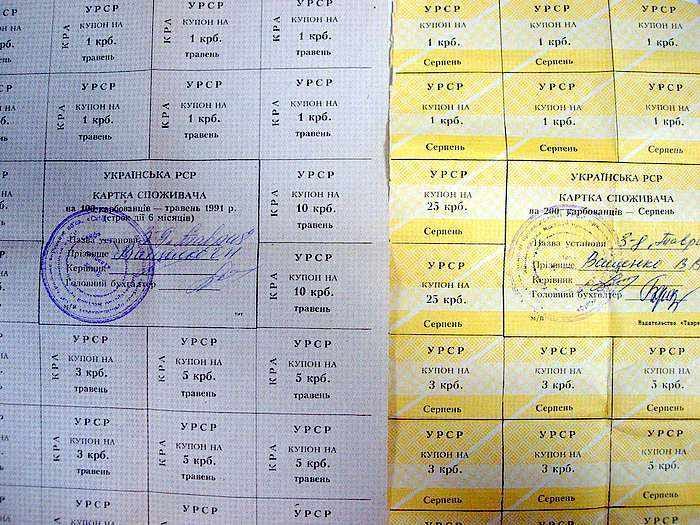 УРСР
КРА
1 крб.
травень
УРСР
КРА
КУПОН НА
1 крб.
травень
УРСР
КРА
КУПОН НА
1 крб.
травень
УРСР
КУПОН НА
1 крб.
КРА
УРСР
КУПОН НА
1 крб.
травень
КРА
УРСР
КУПОН НА
1 крб.
травень
УКРАЇНСЬКА РСР
КАРТКА СПОЖИВАЧА
на 100 карбованців — травень 1991 р.
(строк дії 6 місяців)
Назва установи
Прізвище
Керівник
Головний бухгалтер
УРСР
КУПОН НА
10 крб.
травень
КРА
УРСР
КУПОН НА
10 крб.
травень
КРА
УРСР
КУПОН НА
3 крб.
травень
КРА
УРСР
КУПОН НА
5 крб.
травень
КРА
УРСР
КУПОН НА
5 крб.
травень
УРСР
КУПОН НА
3 крб.
травень
КРА
УРСР
КУПОН НА
5 крб.
травень
КРА
УРСР
КУПОН НА
5 крб.
травень
УРСР
УРСР
УРСР
УРСР
КУПОН НА
1 крб.
Серпень
УРСР
КУПОН НА
1 крб.
Серпень
УРСР
КУПОН НА
1 крб.
Серпень
УРСР
КУПОН НА
1 крб.
Серпень
УРСР
КУПОН НА
1 крб.
Серпень
УРСР
КУПОН НА
1 крб.
Серпень
УРСР
КУПОН НА
25 крб.
Серпень
УРСР
КУПОН НА
25 крб.
Серпень
УКРАЇНСЬКА РСР
КАРТКА СПОЖИВАЧА
на 200 карбованців — Серпень
Назва установи
Прізвище Ващенко В
Керівник
Головний бухгалтер
м/п
Издательство «Таврі
УРСР
КУПОН НА
3 крб.
Серпень
УРСР
КУПОН НА
3 крб.
Серпень
УРСР
КУПОН НА
5 крб.
Серпень
УРСР
КУПОН НА
3 крб.
Серпень
УРСР
КУПОН НА
3 крб.
Серпень
УРСР
КУПОН НА
5 крб.
Серпень
УРСР
УРСР
УРСР